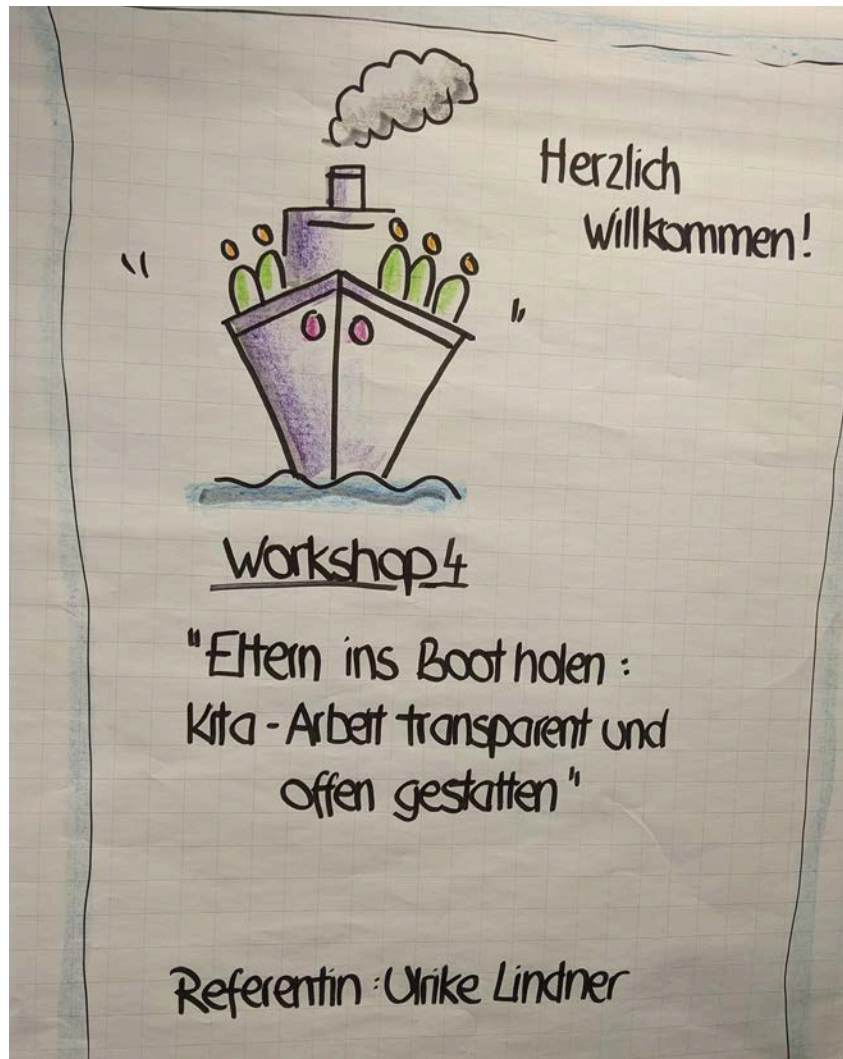 Herzlich
Willkommen!
Workshop 4
"Eltern ins Boot holen:
Kita-Arbeit transparent und
offen gestalten"
Referentin: Ulrike Lindner